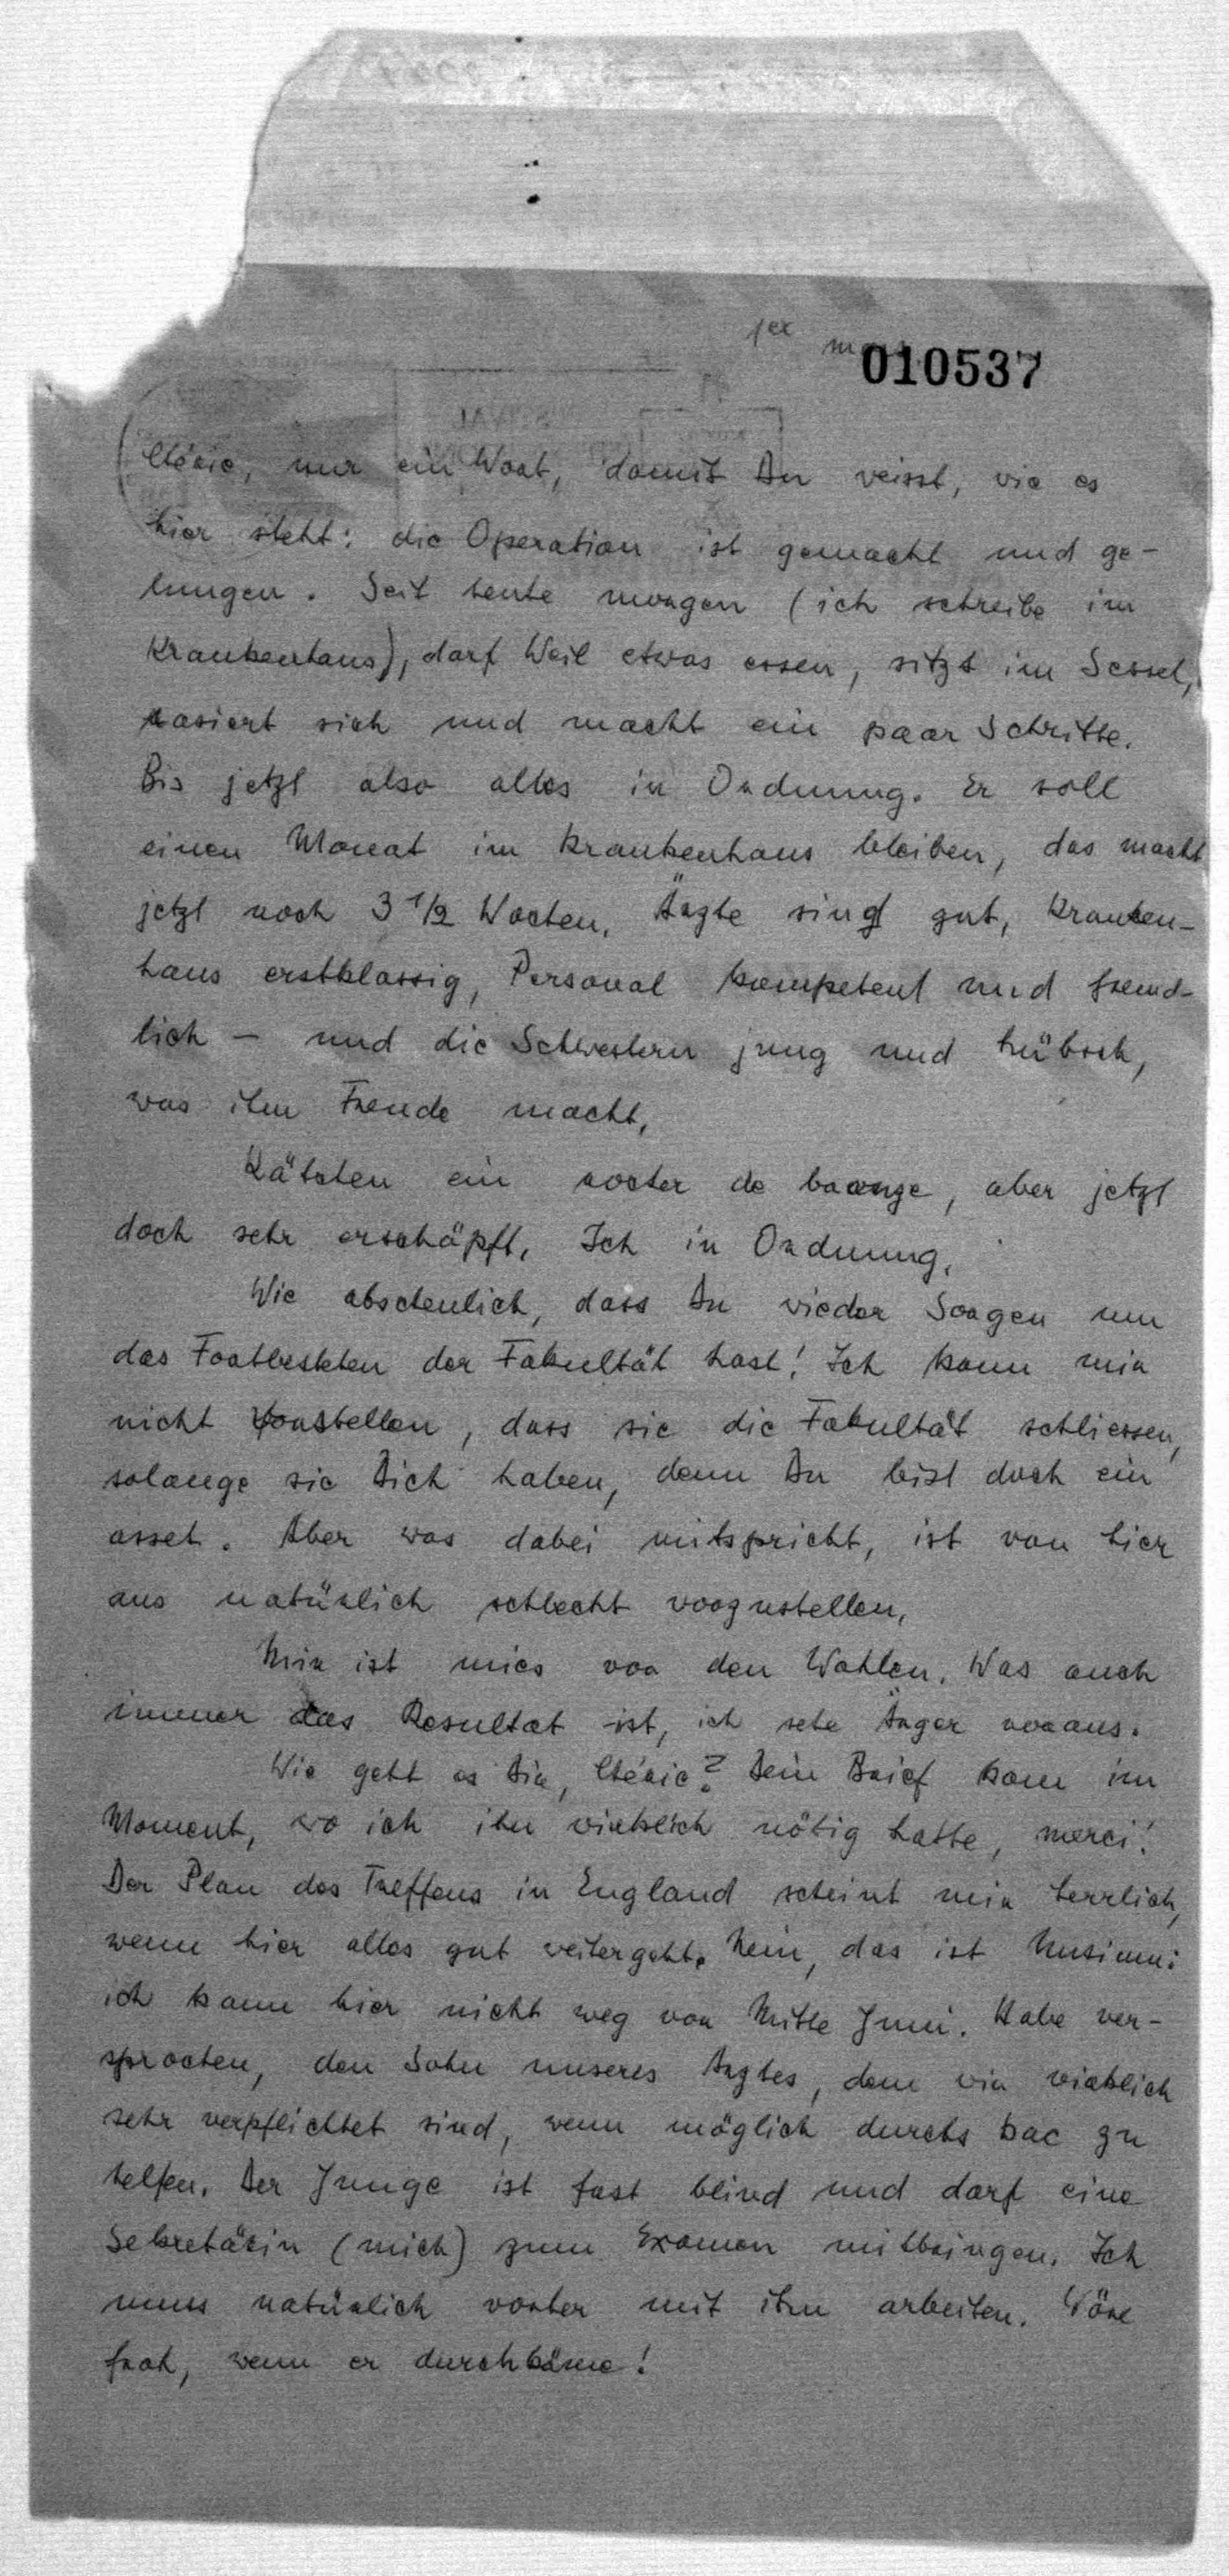 1er mars
010537
Chérie, nur ein Wort, damit Du weisst, wie es
hier steht: die Operation ist gemacht und ge-
lungen. Seit heute morgen (ich schreibe im
Krankenhaus), darf Weil etwas essen, sitzt im Sessel,
rasiert sich und macht ein paar Schritte.
Bis jetzt also alles in Ordnung. Er soll
einen Monat im Krankenhaus bleiben, das macht
jetzt noch 3 1/2 Wochen. Ärzte sind gut, Kranken-
haus erstklassig, Personal kompetent und freund-
lich — und die Schwestern jung und hübsch,
was ihm Freude macht.
Kätchen ein rocher de bronze, aber jetzt
doch sehr erschöpft. Ich in Ordnung.
Wie abscheulich, dass Du wieder Sorgen um
das Fortbestehen der Fakultät hast! Ich kann mir
nicht vorstellen, dass sie die Fakultät schliessen,
solange sie Dich haben, denn Du bist doch ein
asset. Aber was dabei mitspricht, ist von hier
aus natürlich schlecht vorzustellen.
Mir ist mies vor den Wahlen. Was auch
immer das Resultat ist, ich sehe Ärger voraus.
Wie geht es Dir, Chérie? Dein Brief kam im
Moment, wo ich ihn wirklich nötig hatte, merci!
Der Plan des Treffens in England scheint mir herrlich,
wenn hier alles gut weitergeht. Nein, das ist Unsinn:
ich kann hier nicht weg vor Mitte Juni. Habe ver-
sprochen, den Sohn unseres Arztes, dem wir wirklich
sehr verpflichtet sind, wenn möglich durchs bac zu
helfen. Der Junge ist fast blind und darf eine
Sekretärin (mich) zum Examen mitbringen. Ich
muss natürlich vorher mit ihm arbeiten. Wäre
froh, wenn er durchkäme!